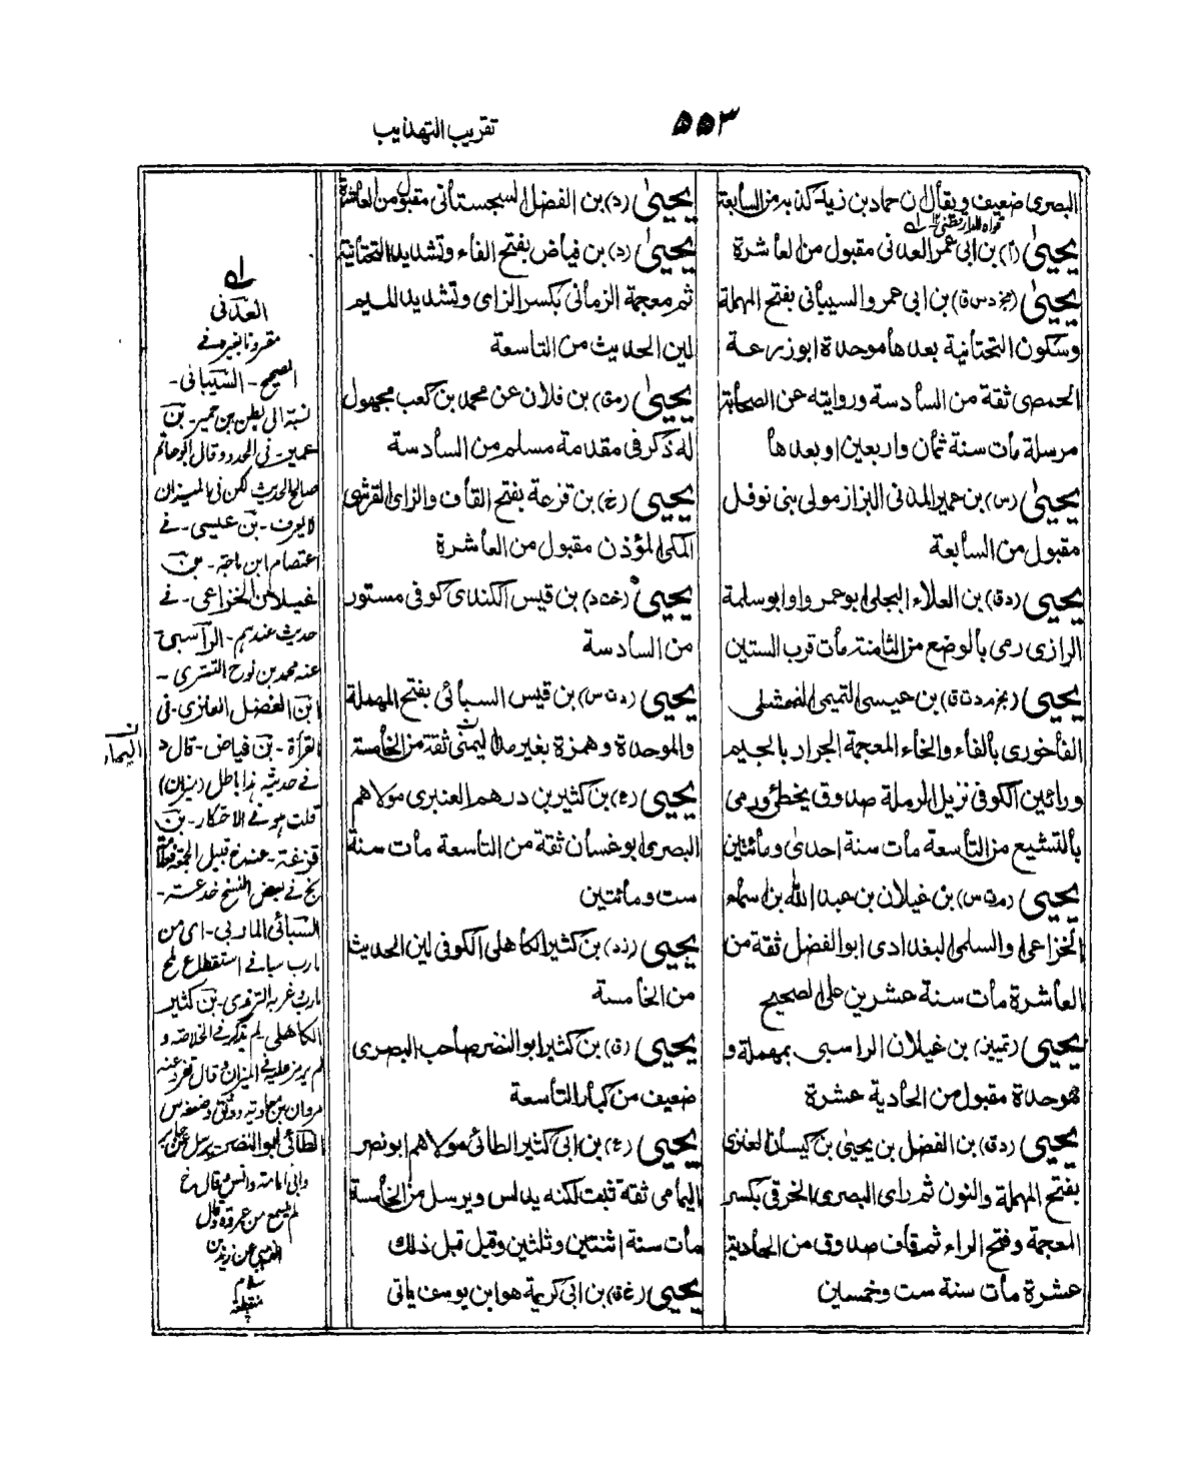 تقريب التهذيب
۵۵۳
البصرى ضعيف ويقال ان حماد بن زيد كذبه من السابعة
يحيىٰ (أ) بن ابى عمر العدنى مقبول من العاشرة
يحيىٰ (بخ د س ق) بن ابى عمرو السيبانى بفتح المهملة
وسكون التحتانية بعدها موحدة ابو زرعة
الحمصى ثقة من السادسة وروايته عن الصحابة
مرسلة مات سنة ثمان واربعين او بعدها
يحيىٰ (س) بن عمير المدنى البزاز مولى بنى نوفل
مقبول من السابعة
يحيى (د ق) بن العلاء البجلى ابو عمرو او ابو سلمة
الرازى رمى بالوضع من الثامنة مات قرب الستين
يحيى (بخ م د ت ق) بن عيسى التميمى النهشلى
الفاخورى بالفاء والخاء المعجمة الجرار بالجيم
ورائين الكوفى نزيل الرملة صدوق يخطئ ورمى
بالتشيع من التاسعة مات سنة احدى ومائتين
يحيى (م ت س) بن غيلان بن عبد الله بن اسماء
الخزاعى او السلمى البغدادى ابو الفضل ثقة من
العاشرة مات سنة عشرين على الصحيح
يحيى (تميز) بن غيلان الراسبى بمهملة و
موحدة مقبول من الحادية عشرة
يحيى (د ق) بن الفضل بن يحيىٰ بن كيسان العنزى
بفتح المهملة والنون ثم زاى البصرى الخرقى بكسر
المعجمة وفتح الراء ثم قاف صدوق من الحادية
عشرة مات سنة ست وخمسين
يحيىٰ (د) بن الفضل السجستانى مقبول من العاشرة
يحيىٰ (د) بن فياض بفتح الفاء وتشديد التحتانية
ثم معجمة الزمانى بكسر الزاى وتشديد الميم
لين الحديث من التاسعة
يحيىٰ (مق) بن فلان عن محمد بن كعب مجهول
له ذكر فى مقدمة مسلم من السادسة
يحيى (خ) بن قزعة بفتح القاف والزاى القرشى
المكى المؤذن مقبول من العاشرة
يحيى (خت د) بن قيس الكندى كوفى مستور
من السادسة
يحيى (د ت س) بن قيس السبائى بفتح المهملة
والموحدة وهمزة بغير مد اليمنى ثقة من الخامسة
يحيى (ع) بن كثير بن درهم العنبرى مولاهم
البصرى ابو غسان ثقة من التاسعة مات سنة
ست ومائتين
يحيى (ز د) بن كثير الكاهلى الكوفى لين الحديث
من الخامسة
يحيى (ق) بن كثير ابو النضر صاحب البصرى
ضعيف من كبار التاسعة
يحيى (ع) بن ابى كثير الطائى مولاهم ابو نصر
اليمامى ثقة ثبت لكنه يدلس ويرسل من الخامسة
مات سنة اثنتين وثلثين وقيل قبل ذلك
يحيى (غ ق) بن ابى كريمة هو ابن يوسف ياتى
العدنى
مقرونا بغيره فى
الصحيح - السيبانى -
نسبة الى بطن من حمير - بن
عمير - فى الحدود وقال ابو حاتم
صالح الحديث لكن فى الميزان
لا يعرف - بن عيسى - فى
اعتصام ابن ماجة - بن
غيلان الخزاعى - فى
حديث عندهم - الراسبى
عنه محمد بن نوح التسترى -
ابن الفضل العنزى - فى
القرأة - بن فياض - قال د
فى حديثه هذا باطل (ميزان)
قلت هو فى الاحتكار - بن
قزعة - عنه خ قبيل الجمعة
فى بعض النسخ خدعة -
السبائى الماربى - اى من
مارب سبا فى استقطاع الملح
مارب وغربه الترمذى - بن كثير
الكاهلى لم يذكره فى الخلاصة و
لم يرمز عليه فى الميزان وقال تفرد عنه
مروان بن معاوية ووثق وضعفه س
الطائى ابو النصر - يرسل عن
وابى امامة وانس وقال
لم يسمع من عروة وقال
عن زيد بن
سلام
منقطعة